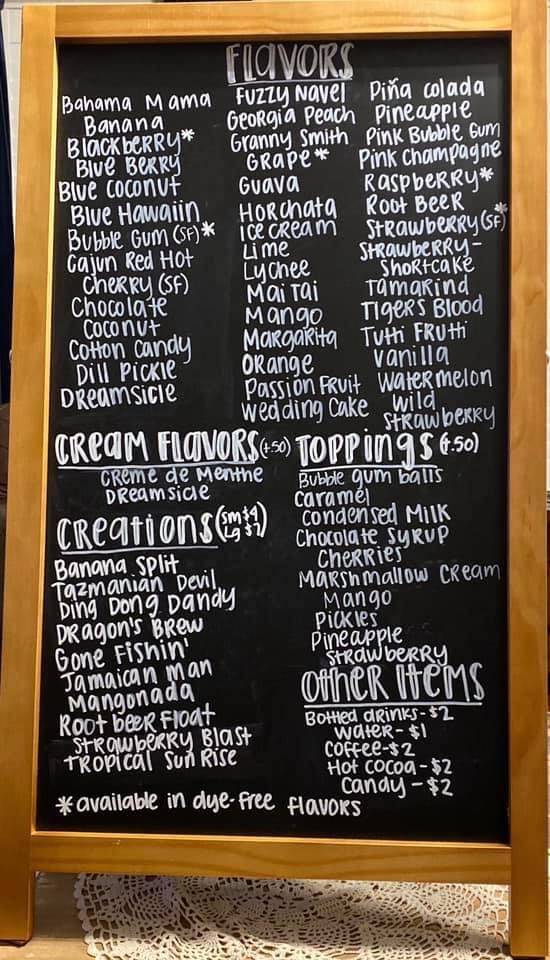 FLAVORS
Bahama Mama
Banana
Blackberry*
Blue Berry
Blue Coconut
Blue Hawaiin
Bubble Gum (SF)*
Cajun Red Hot
Cherry (SF)
Chocolate
Coconut
Cotton Candy
Dill Pickle
Dreamsicle
Fuzzy Navel
Georgia Peach
Granny Smith
Grape*
Guava
Horchata
Ice Cream
Lime
Lychee
Mai Tai
Mango
Margarita
Orange
Passion Fruit
Wedding Cake
Piña colada
Pineapple
Pink Bubble Gum
Pink Champagne
Raspberry*
Root Beer
Strawberry (SF)*
Strawberry-
Shortcake
Tamarind
Tigers Blood
Tutti Frutti
Vanilla
Watermelon
Wild
Strawberry
Cream Flavors (+.50)
Crème de Menthe
Dreamsicle
Creations (Sm $4
Lg $7)
Banana Split
Tazmanian Devil
Ding Dong Dandy
Dragon's Brew
Gone Fishin'
Jamaican Man
Mangonada
Root beer Float
Strawberry Blast
Tropical Sun Rise
Toppings (+.50)
Bubble gum balls
Caramel
Condensed Milk
Chocolate Syrup
Cherries
Marshmallow Cream
Mango
Pickles
Pineapple
Strawberry
Other Items
Bottled drinks-$2
Water-$1
Coffee-$2
Hot Cocoa-$2
Candy-$2
*available in dye-free flavors